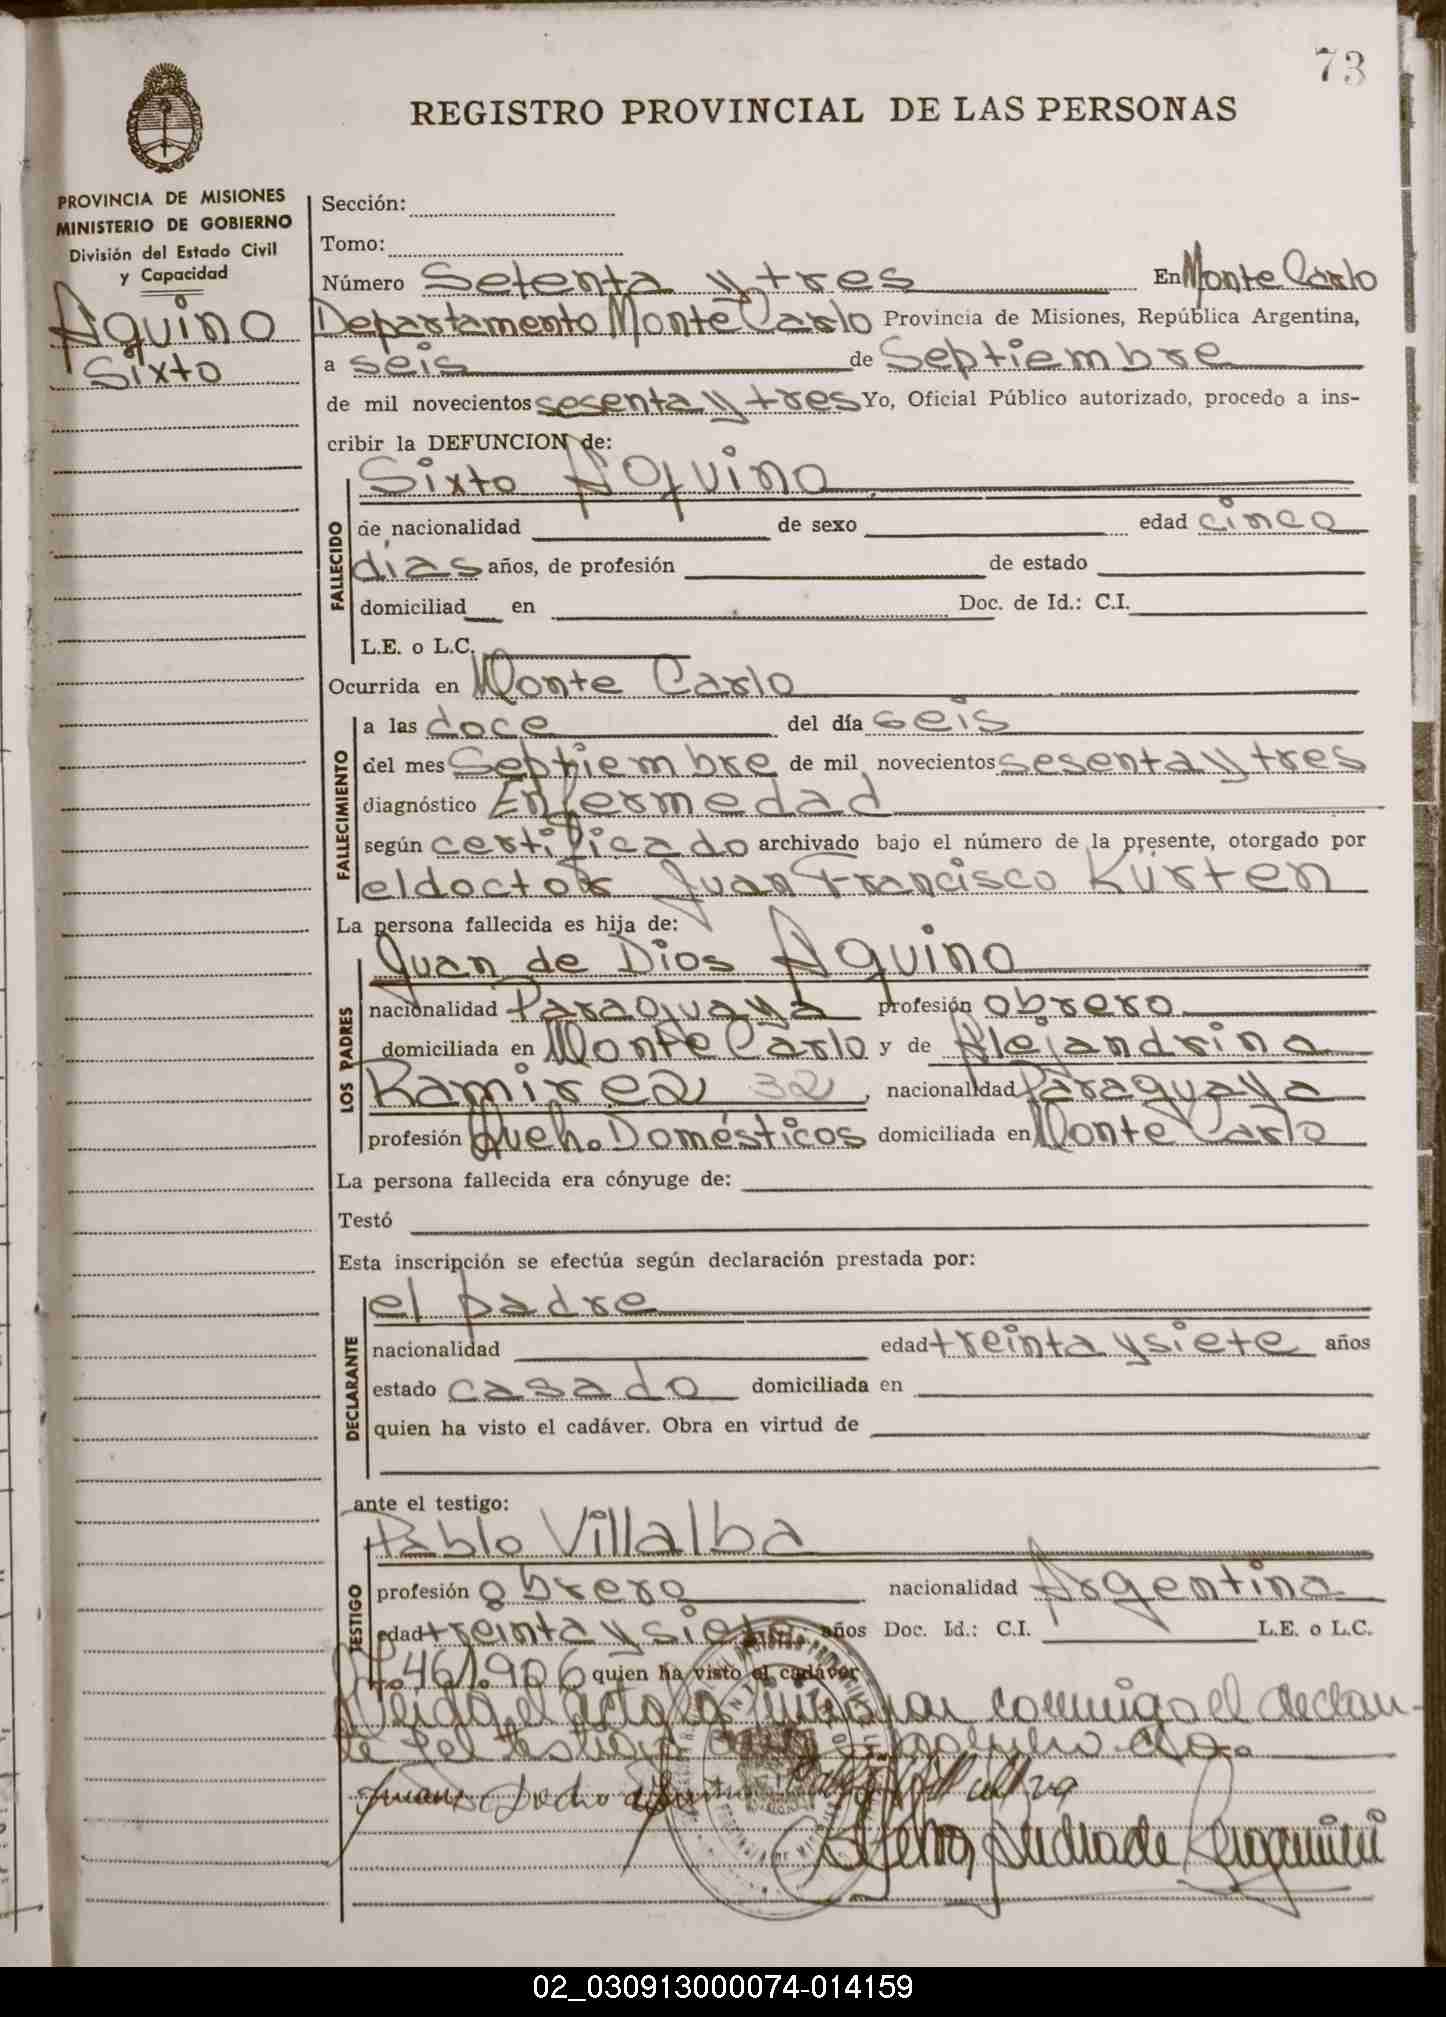 73
REGISTRO PROVINCIAL DE LAS PERSONAS
PROVINCIA DE MISIONES
MINISTERIO DE GOBIERNO
División del Estado Civil
y Capacidad
Aquino
Sixto
Sección:
Tomo:
Número Setenta y tres En Monte Carlo
Departamento Monte Carlo Provincia de Misiones, República Argentina,
a seis de Septiembre
de mil novecientos sesenta y tres Yo, Oficial Público autorizado, procedo a ins-
cribir la DEFUNCION de:
FALLECIDO
Sixto Aquino
de nacionalidad de sexo edad cinco
dias años, de profesión de estado
domiciliad en Doc. de Id.: C.I.
L.E. o L.C.
Ocurrida en Monte Carlo
FALLECIMIENTO
a las doce del día seis
del mes Septiembre de mil novecientos sesenta y tres
diagnóstico Enfermedad
según certificado archivado bajo el número de la presente, otorgado por
el doctor Juan Francisco Kürten
La persona fallecida es hija de:
LOS PADRES
Juan de Dios Aquino
nacionalidad Paraguaya profesión obrero
domiciliada en Monte Carlo y de Alejandrina
Ramirez 32 , nacionalidad Paraguaya
profesión Queh. Domésticos domiciliada en Monte Carlo
La persona fallecida era cónyuge de:
Testó
Esta inscripción se efectúa según declaración prestada por:
DECLARANTE
el padre
nacionalidad edad treinta y siete años
estado casado domiciliada en
quien ha visto el cadáver. Obra en virtud de
ante el testigo:
TESTIGO
Pablo Villalba
profesión obrero nacionalidad Argentina
edad treinta y siete años Doc. Id.: C.I. L.E. o L.C.
461.906 quien ha visto el cadáver
Leida el acta la firman conmigo el declaran-
te y el testigo
02_030913000074-014159